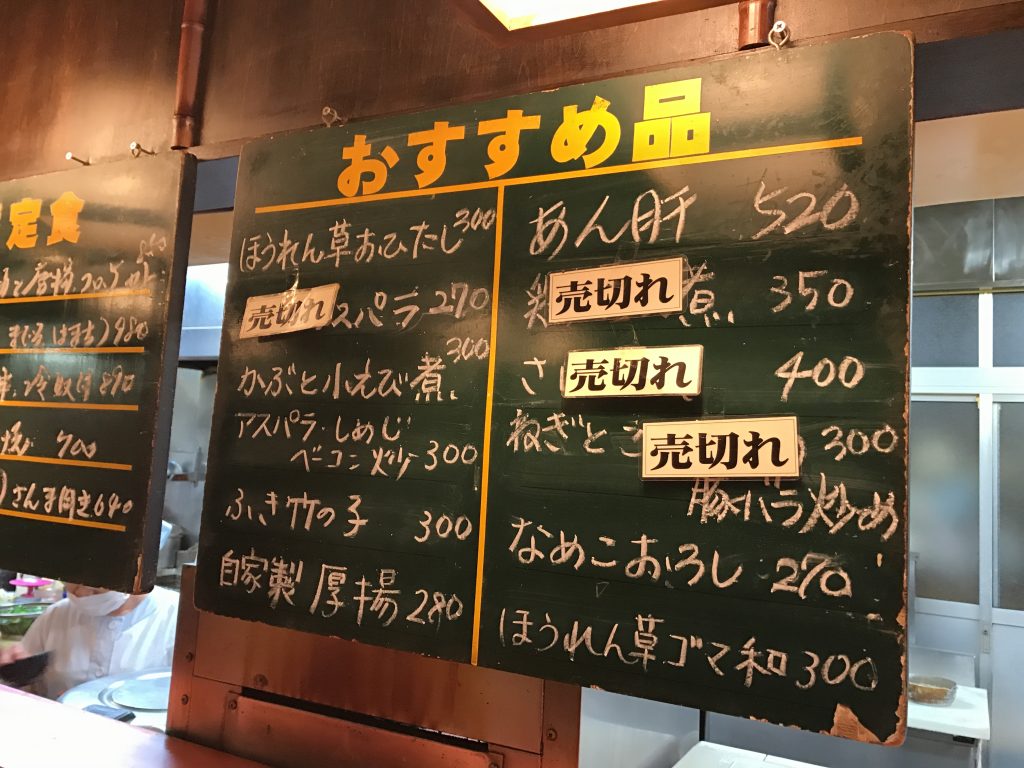 定食
まぐろ はまち) 980
冷奴付 890
焼 700
さんま開き 640
おすすめ品
ほうれん草おひたし 300
売切れ スパラ 270
かぶと小えび煮 300
アスパラ・しめじ
ベーコン炒 300
ふき竹の子 300
自家製 厚揚 280
あん肝 520
売切れ 煮 350
さ 売切れ 400
ねぎと 売切れ 300
豚バラ炒め
なめこおろし 270
ほうれん草ゴマ和 300